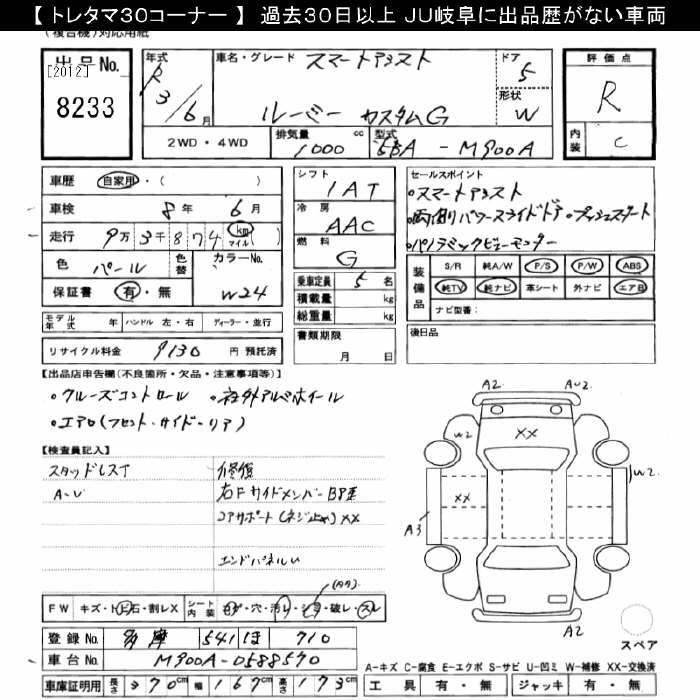 【 トレタマ30コーナー 】 過去30日以上 JU岐阜に出品歴がない車両
(複合機)対応用紙
出品No. [2012] 8233
年式 R 3/6月
車名・グレード スマートアシスト
ルーミー カスタムG
ドア 5
形状 W
評価点 R
内装 C
2WD・4WD
排気量 1000 cc
型式 5BA - M900A
車歴 自家用・( )
車検 8年 6月
走行 9万 3千 874 km マイル ( )
色 パール 色替 カラーNo. W24
保証書 有・無
モデル年式 年 ハンドル 左・右 ディーラー・並行
リサイクル料金 9130 円 預託済
シフト IAT
冷房 AAC
燃料 G
乗車定員 5 名
積載量 kg
総重量 kg
書類期限 月 日
セールスポイント
・スマートアシスト
・両側パワースライドドア ・プッシュスタート
・パノラミックビューモニター
装備品 S/R 純A/W P/S P/W ABS
純TV 純ナビ 革シート 外ナビ エアB
ナビ型番:
後日品
【出品店申告欄(不良箇所・欠品・注意事項等)】
・クルーズコントロール ・社外アルミホイール
・エアロ(フロント・サイド・リア)
【検査員記入】
スタッドレスT
A-U
修復
右Fサイドメンバー
コアサポート(ネジ止め)XX
エンドパネルU
A2 A-U2
W2 XX W2
XX
A3
A2
スペア
FW キズ・トビ石・割レX シート内装 コゲ・穴・汚レ・シミ・破レ・スレ
登録No. 多摩 541 ほ 710
車台No. M900A-0588570
車庫証明用 長さ 370cm 幅 167cm 高さ 173cm
A-キズ C-腐食 E-エクボ S-サビ U-凹ミ W-補修 XX-交換済
工具 有・無 ジャッキ 有・無